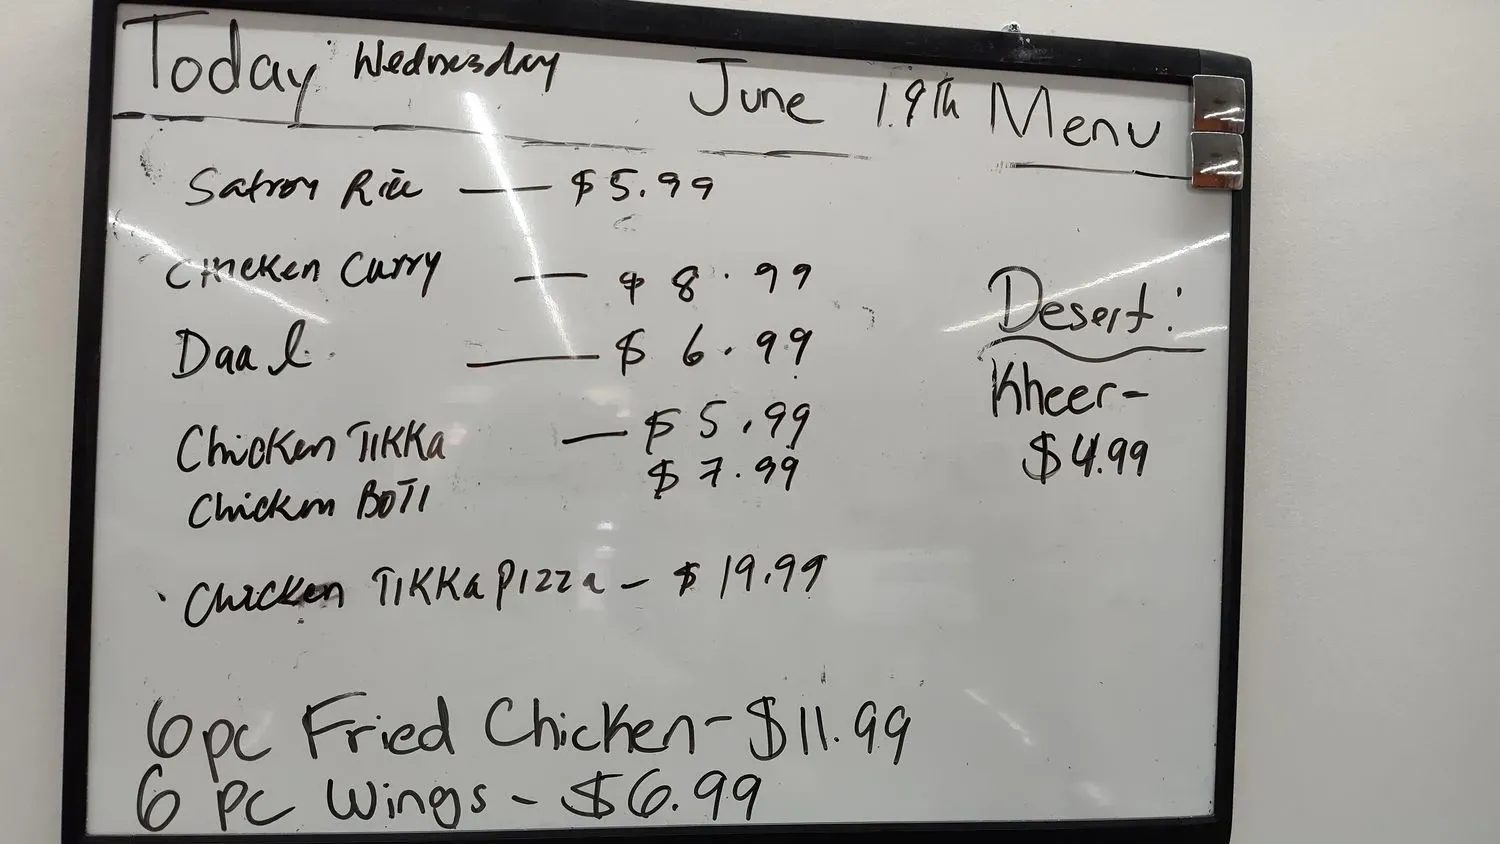 Today Wednesday June 19Th Menu
Safron Rice — $5.99
Chicken Curry — $8.99
Daal — $6.99
Chicken TIKKa — $5.99
Chicken BOTI $7.99
Chicken TIKKa PIZZa - $19.99
6pc Fried Chicken - $11.99
6 pc Wings - $6.99
Desert:
Kheer -
$4.99